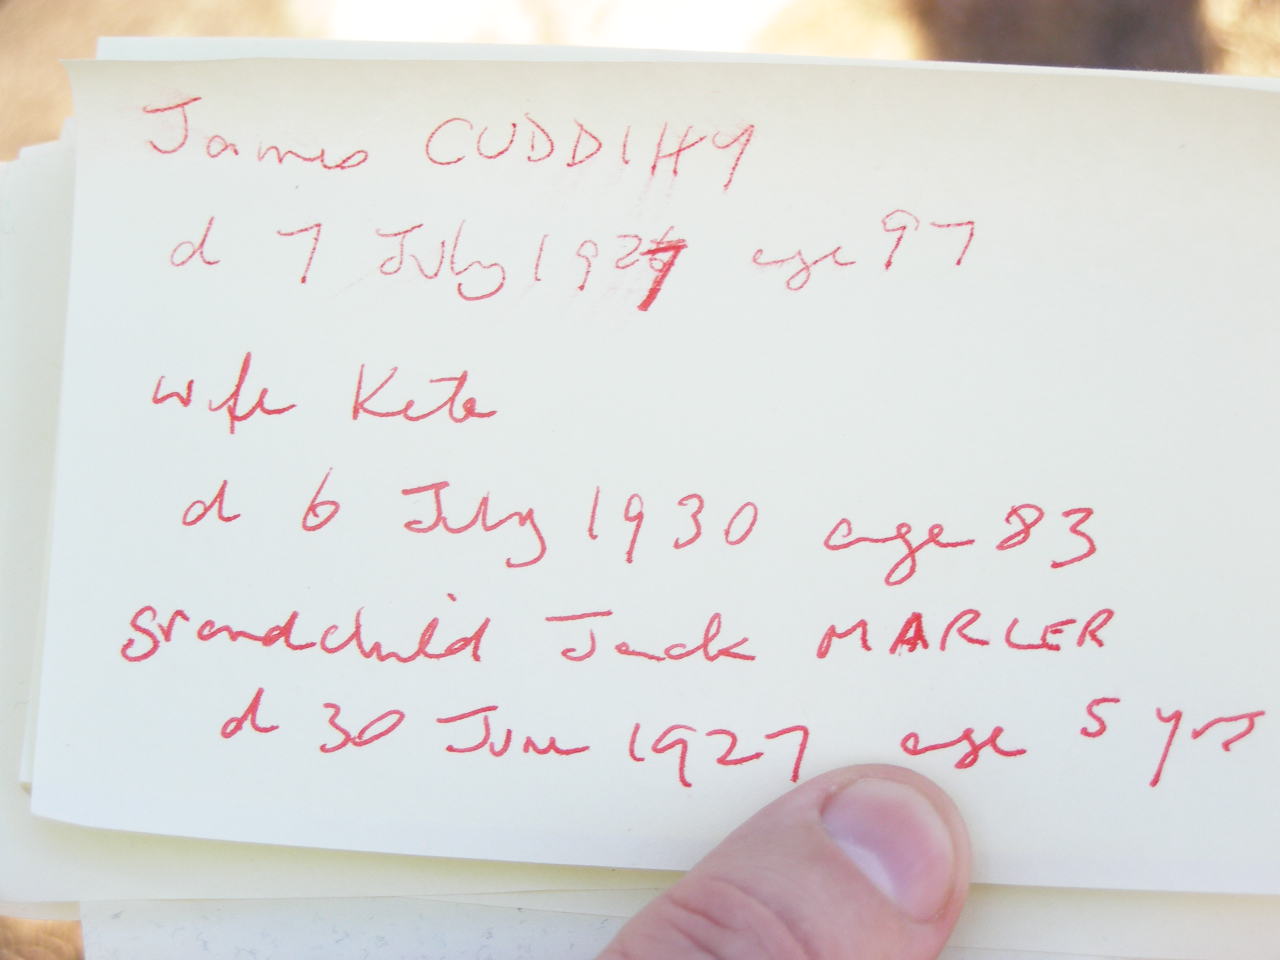 James CUDDIHY
d 7 July 1927 age 97
wife Kate
d 6 July 1930 age 83
grandchild Jack MARLER
d 30 June 1927 age 5 yrs